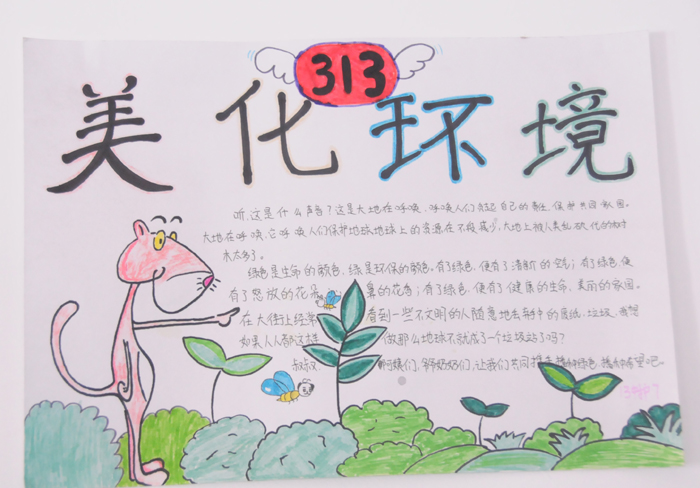 313
美化环境
听,这是什么声音?这是大地在呼唤,呼唤人们负起自己的责任,保护共同家园。
大地在呼唤,它呼唤人们保护地球,地球上的资源在不断减少,大地上被人类乱砍乱伐的树
木太多了。
绿色是生命的颜色,绿是环保的颜色。有了绿色,便有了清新的空气;有了绿色,便
有了怒放的花朵 的花香;有了绿色,便有了健康的生命,美丽的家园。
在大街上经常 看到一些不文明的人随意地丢弃手中的废纸、垃圾,我想
如果人人都这样 做那么地球不就成了一个垃圾站了吗?
叔叔 阿姨们,爷爷奶奶们,让我们共同 绿色, 希望吧